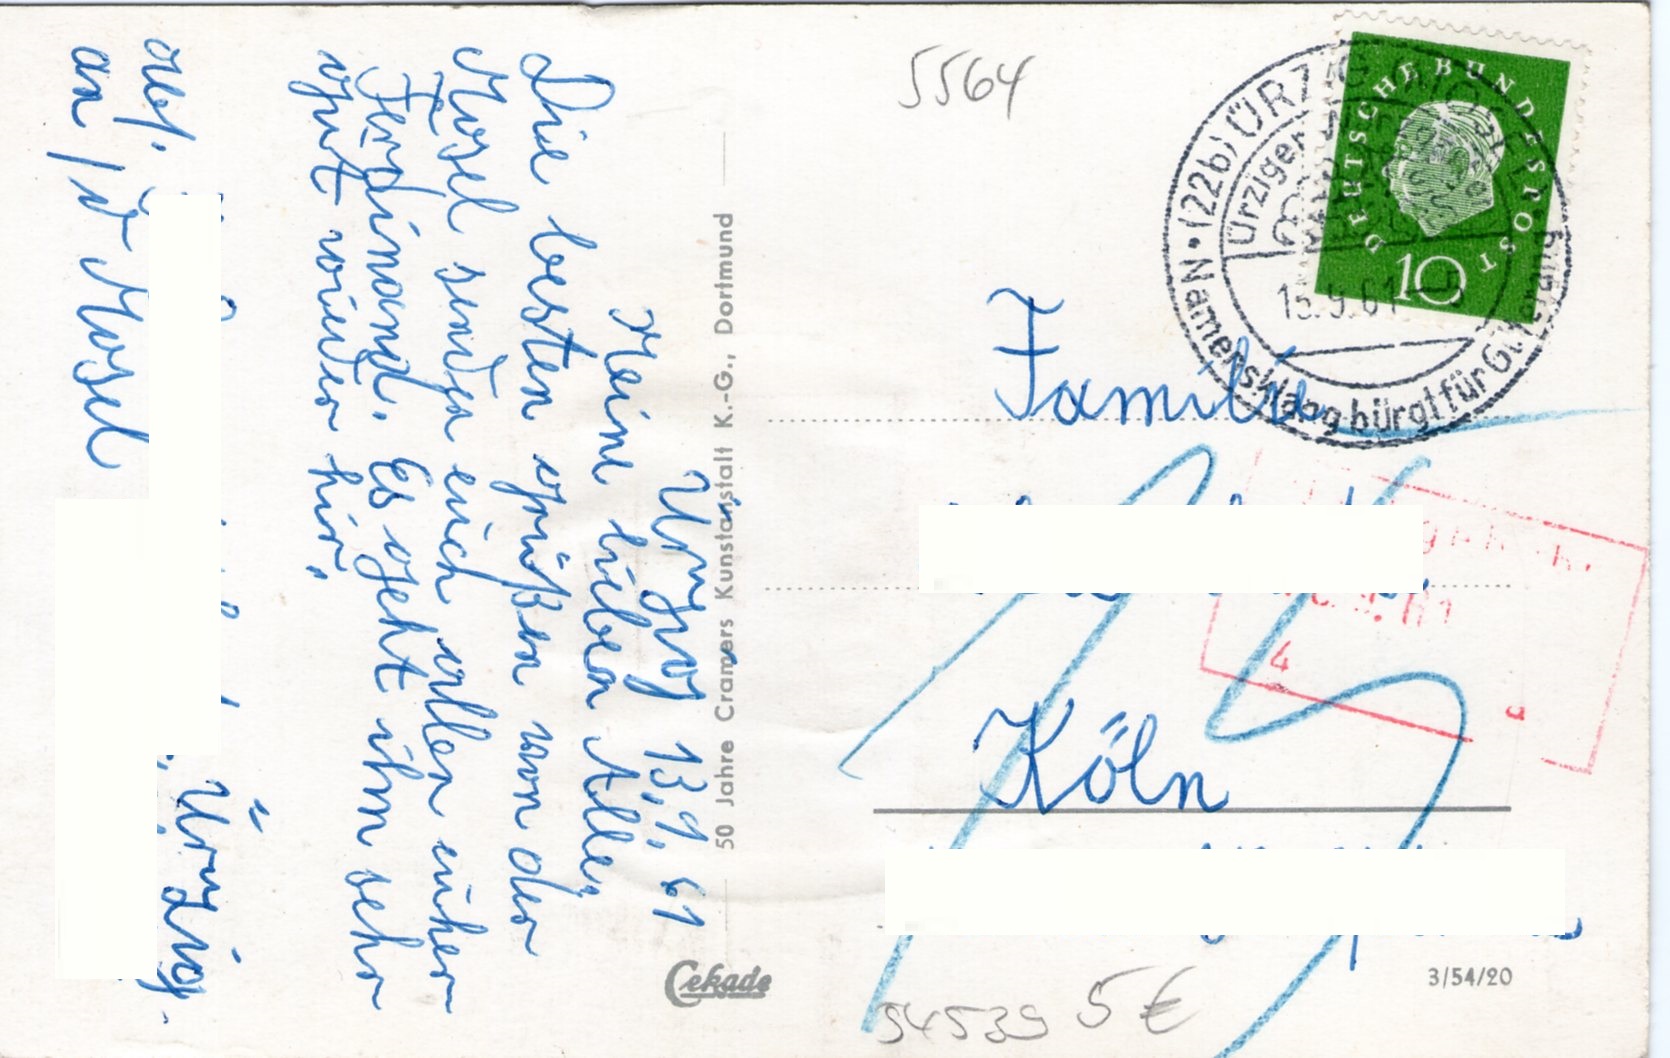 Ürzig 13,9,61
Meine lieben Alle,
Die besten grüßen von der
Mosel senden euch allen euher
Ferdinand. Es geht ihm sehr
gut wieder hir.
abs.
Ürzig.
an/d Mosel
50 Jahre Cramers Kunstanstalt K.-G., Dortmund
Cekade
5564
DEUTSCHE BUNDESPOST
10
(22b) ÜRZIG
Ürziger
15.9.61-5
Namensklang bürgt für
Familie
Köln
3/54/20
54539 5 €